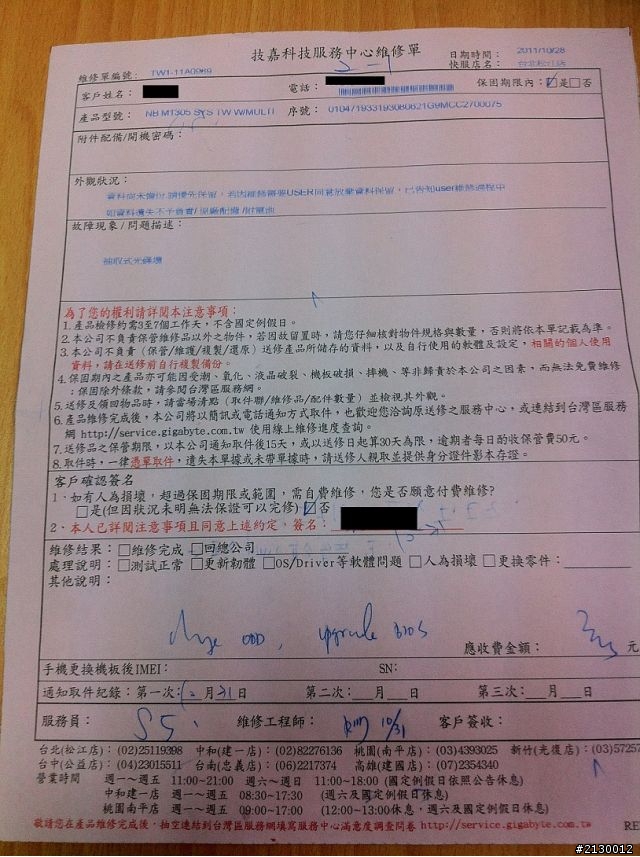 技嘉科技服務中心維修單
維修單編號： TW1-11A0969
日期時間： 2011/10/28
快服店名： 台北松江店
客戶姓名：
電話：
保固期限內：☑是□否
產品型號： NB M1305 SYS TW W/MULTI 序號： 01047193319308062 1G9MCC2700075
附件配備/開機密碼：
外觀狀況：
資料尚未備份,請優先保留，若因維修需要USER同意放棄資料保留，已告知user維修過程中
如資料遺失不予負責/ 原廠配備 /附電池
故障現象/問題描述：
抽取式光碟壞
為了您的權利請詳閱本注意事項：
1.產品檢修約需3至7個工作天，不含國定例假日。
2.本公司不負責保管維修品以外之物件，若因故留置時，請您仔細核對物件規格與數量，否則將依本單記載為準。
3.本公司不負責（保管/維護/複製/還原）送修產品所儲存的資料，以及自行使用的軟體及設定，相關的個人使用
資料，請在送修前自行複製備份。
4.保固期內之產品亦可能因受潮、氧化、液晶破裂、機板破損、摔機、等非歸責於本公司之因素，而無法免費維修
；保固除外條款，請參閱台灣區服務網。
5.送修及領回物品時，請當場清點（取件聯/維修品/配件數量）並檢視其外觀。
6.產品維修完成後，本公司將以簡訊或電話通知方式取件，也歡迎您洽詢原送修之服務中心，或連結到台灣區服務
網 http://service.gigabyte.com.tw 使用線上維修進度查詢。
7.送修品之保管期限，以本公司通知取件後15天，或以送修日起算30天為限，逾期者每日酌收保管費50元。
8.取件時，一律憑單取件，遺失本單據或未帶單據時，請送修人親取並提供身分證件影本存證。
客戶確認簽名
1、如有人為損壞，超過保固期限或範圍，需自費維修，您是否願意付費維修?
□是(但因狀況未明無法保證可以完修) ☑否
2、本人已詳閱注意事項且同意上述約定，簽名：
維修結果：□維修完成 □回總公司
處理說明：□測試正常 □更新韌體 □OS/Driver等軟體問題 □人為損壞 □更換零件：
其他說明：
change ODD, upgrade BIOS
應收費金額： 元
手機更換機板後IMEI： SN：
通知取件紀錄：第一次: 月31日 第二次：__月__日 第三次：__月__日
服務員： 維修工程師： 10/31 客戶簽收：
台北(松江店)：(02)25119398 中和(建一店)：(02)82276136 桃園(南平店)：(03)4393025 新竹(光復店)：(03)57257
台中(公益店)：(04)23015511 台南(忠義店)：(06)2217374 高雄(建國店)：(07)2354340
營業時間 週一～週五 11:00~21:00 週六～週日 11:00~18:00 (國定例假日依照公告休息)
中和建一店 週一～週五 08:30~17:30 (週六及國定例假日休息)
桃園南平店 週一～週五 09:00~17:00 (12:00~13:00休息，週六及國定例假日休息)
敬請您在產品維修完成後，抽空連結到台灣區服務網填寫服務中心滿意度調查問卷 http://service.gigabyte.com.tw
RE
#2130012